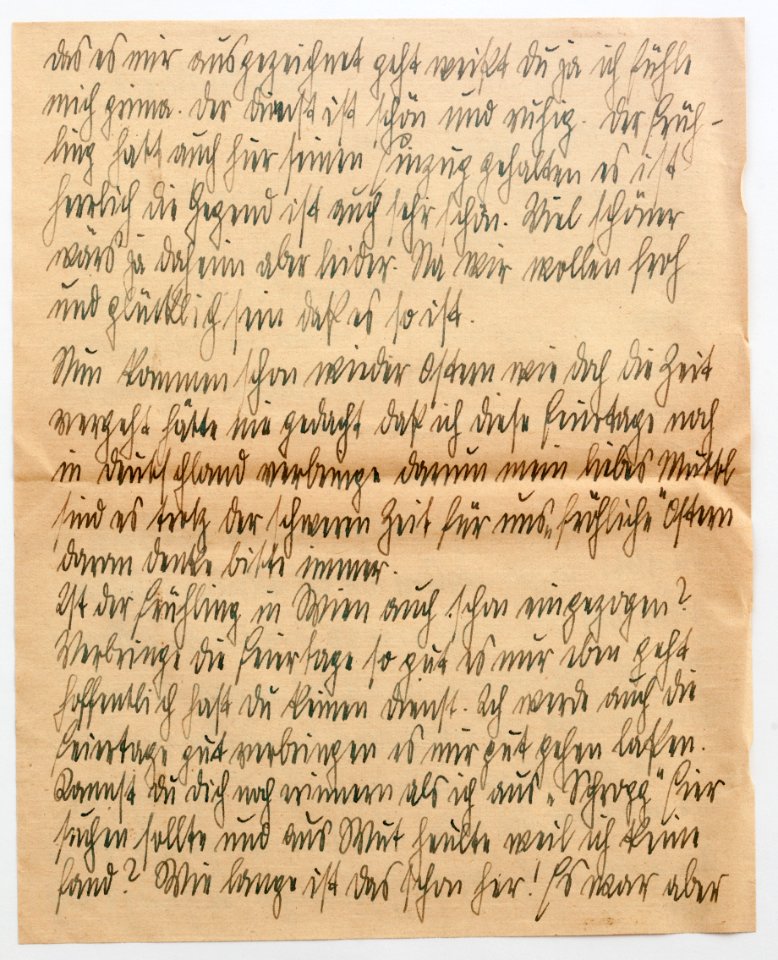 das es mir ausgezeichnet geht weißt du ja ich fühle
mich prima. Der Dienst ist schön und ruhig. Der Früh-
ling hatt auch hier seinen Einzug gehalten es ist
herrlich die Gegend ist auch sehr schön. Viel schöner
wärs ja daheim aber leider. Na wir wollen froh
und glücklich sein daß es so ist.
Nun kommen schon wieder Ostern wie doch die Zeit
vergeht hätte nie gedacht daß ich diese Feiertage noch
in Deutschland verbringe darum mein liebes Muttl
sind es trotz der schweren Zeit für uns „fröhliche" Ostern
daran denke bitte immer.
Ist der Frühling in Wien auch schon eingezogen?
Verbringe die Feiertage so gut es nur eben geht
hoffentlich hast du keinen Dienst. Ich werde auch die
Feiertage gut verbringen es mir gut gehen laßen.
Kannst du dich noch erinnern als ich aus „Schropp" Eier
suchen sollte und aus Wut heulte weil ich keine
fand? Wie lange ist das schon her! Es war aber